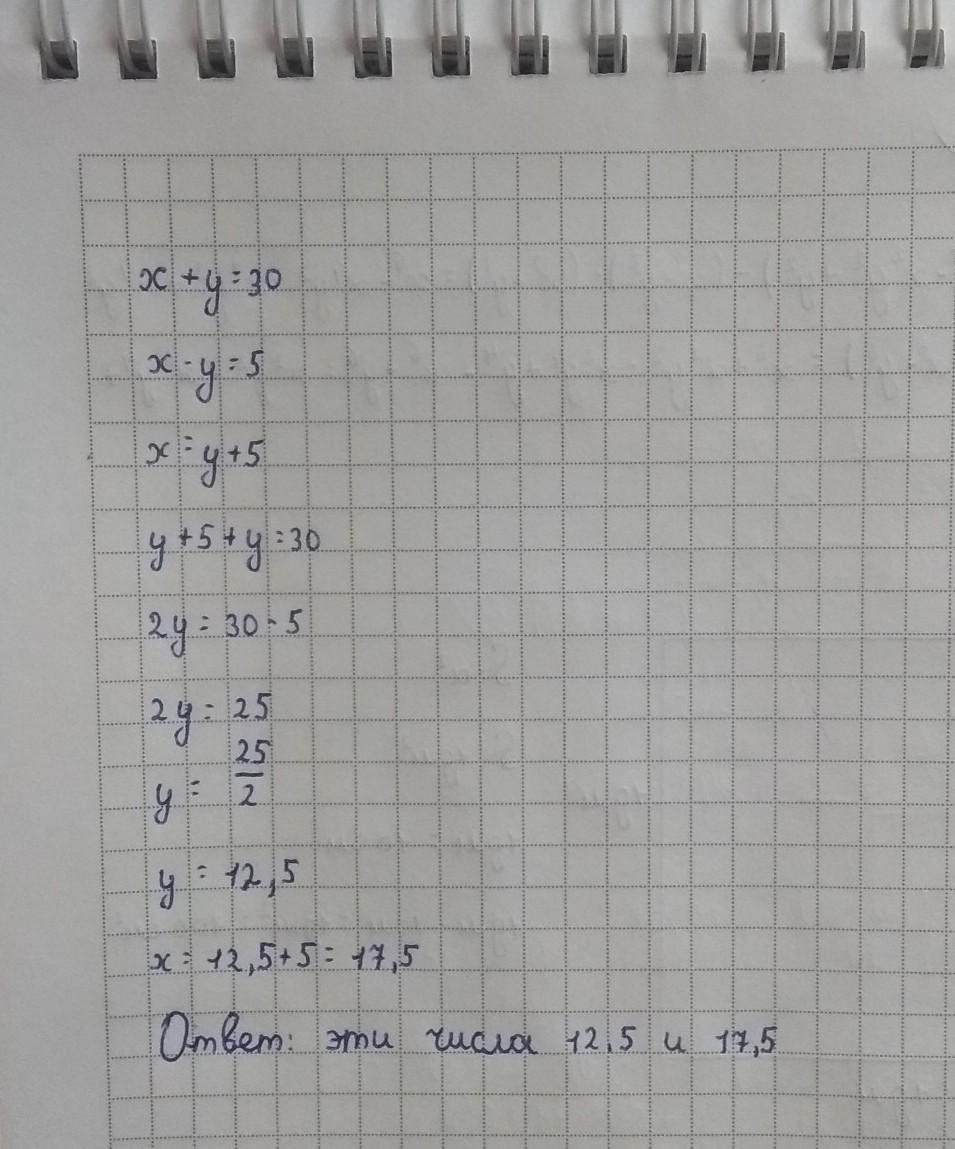 x + y = 30
x - y = 5
x = y + 5
y + 5 + y = 30
2y = 30 - 5
2y = 25
y = 25/2
y = 12,5
x = 12,5 + 5 = 17,5
Ответ: эти числа 12,5 и 17,5